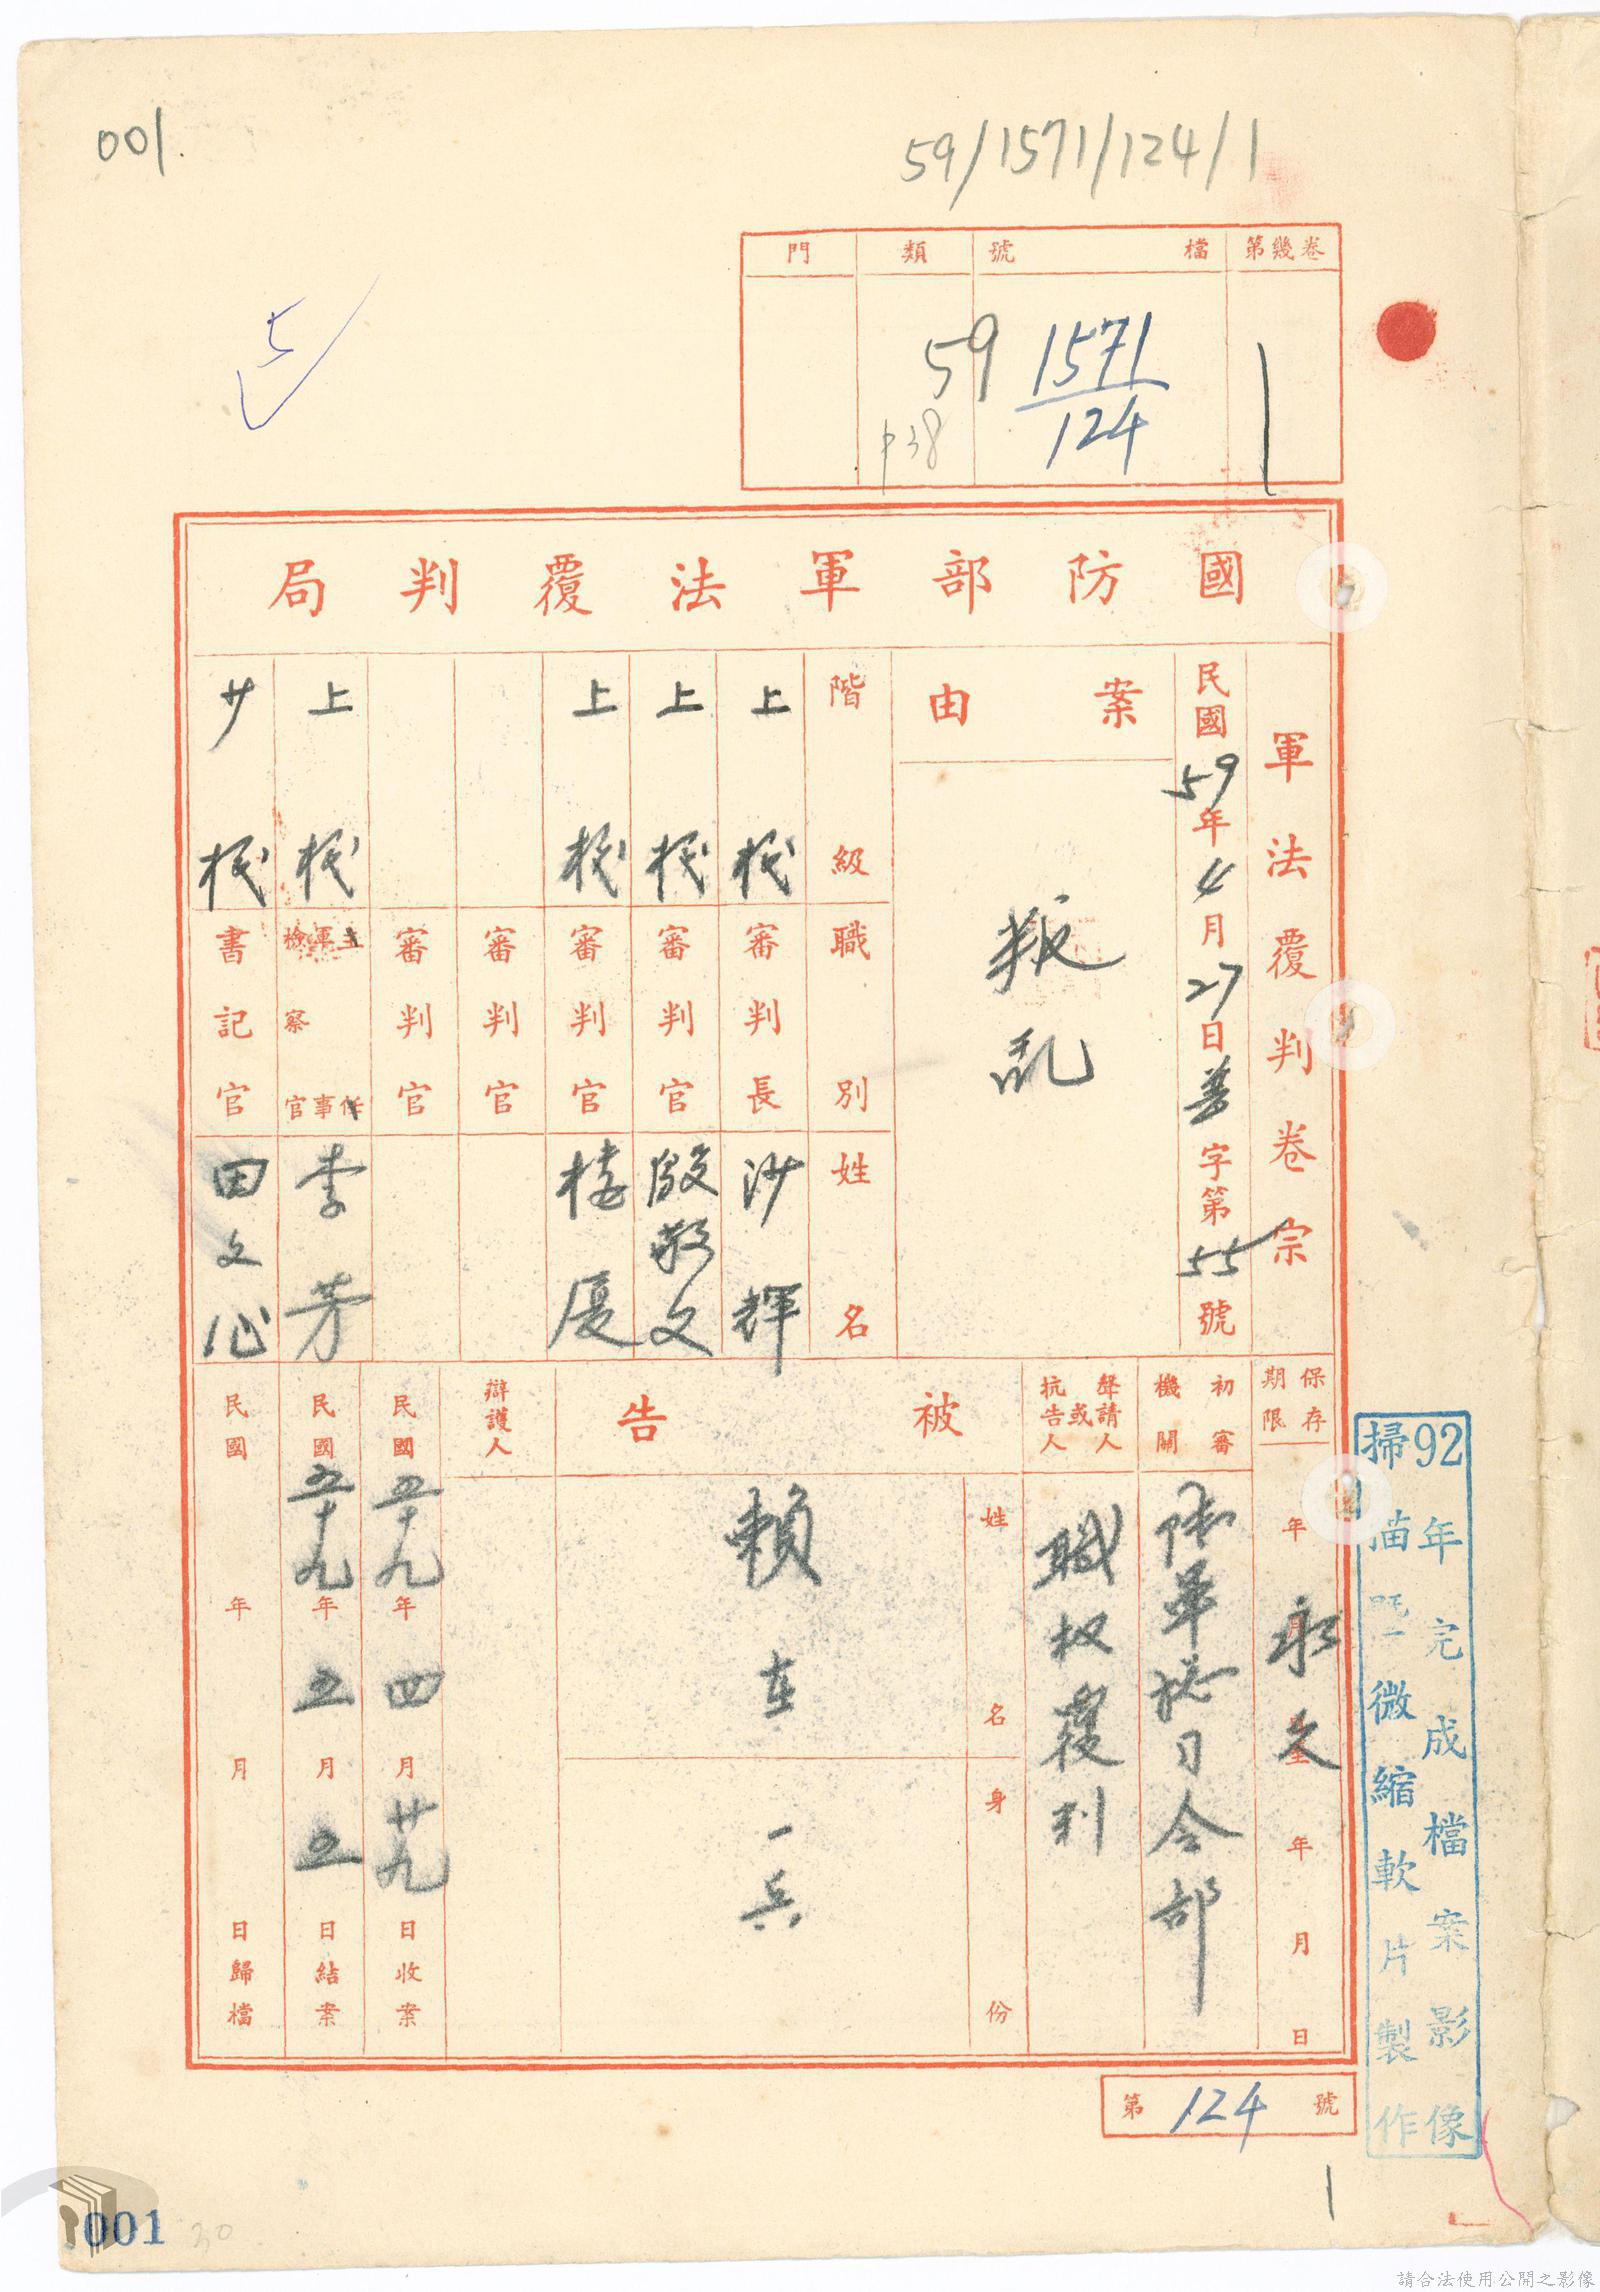 001.
59/1571/124/1
第幾卷
檔號
類
門
1
1571
124
59
國防部軍法覆判局
軍法覆判卷宗
民國59年4月27日普字第55號
案由
叛乱
階級 職別 姓名
上校 審判長 沙輝
上校 審判官 殷敬文
上校 審判官
審判官
審判官
上校 主任軍事檢察官 李芳
少校 書記官 田文心
保存期限
年 月 日至 年 月 日
永久
初審機關
陸軍總司令部
聲請人或抗告人
職权覆判
被告
姓名
賴在
身份
一兵
辯護人
民國五十九年四月廿九日收案
民國五十九年五月五日結案
民國 年 月 日歸檔
92年完成檔案影像
掃描暨微縮軟片製作
第124號
1
001
30
請合法使用公開之影像